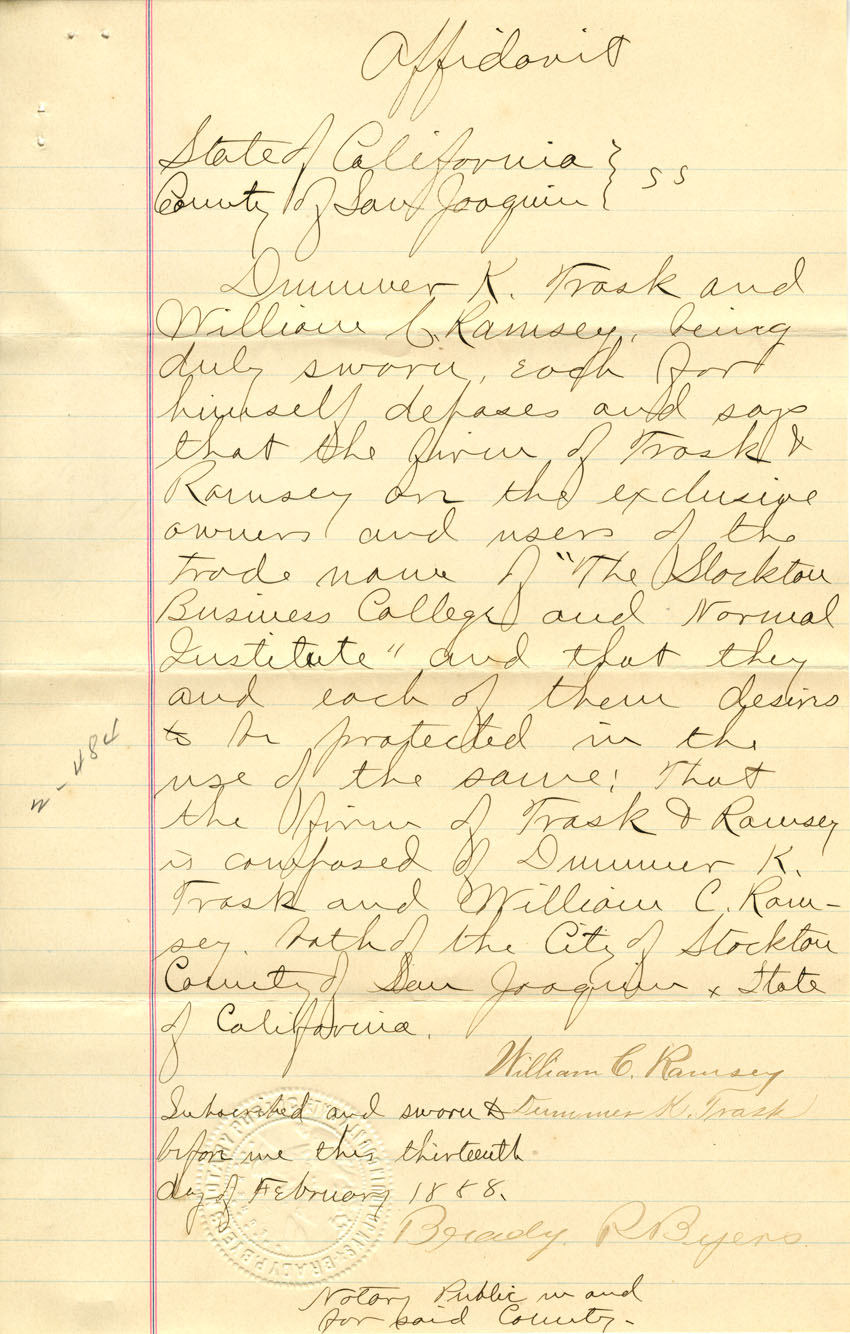 Affidavit
State of California }
County of San Joaquin } SS
Dummer K. Trask and
William C. Ramsey, being
duly sworn, each for
himself deposes and says
that the firm of Trask &
Ramsey are the exclusive
owners and users of the
trade name of "The Stockton
Business College and Normal
Institute" and that they
and each of them desires
to be protected in the
use of the same; That
the firm of Trask & Ramsey
is composed of Dummer K.
Trask and William C. Ram-
sey. both of the City of Stockton
County of San Joaquin & State
of California.
William C. Ramsey
Dummer K. Trask
Subscribed and sworn to
before me this thirteenth
day of February 1888.
Brady P. Byers
Notary Public in and
for said County-
2-484